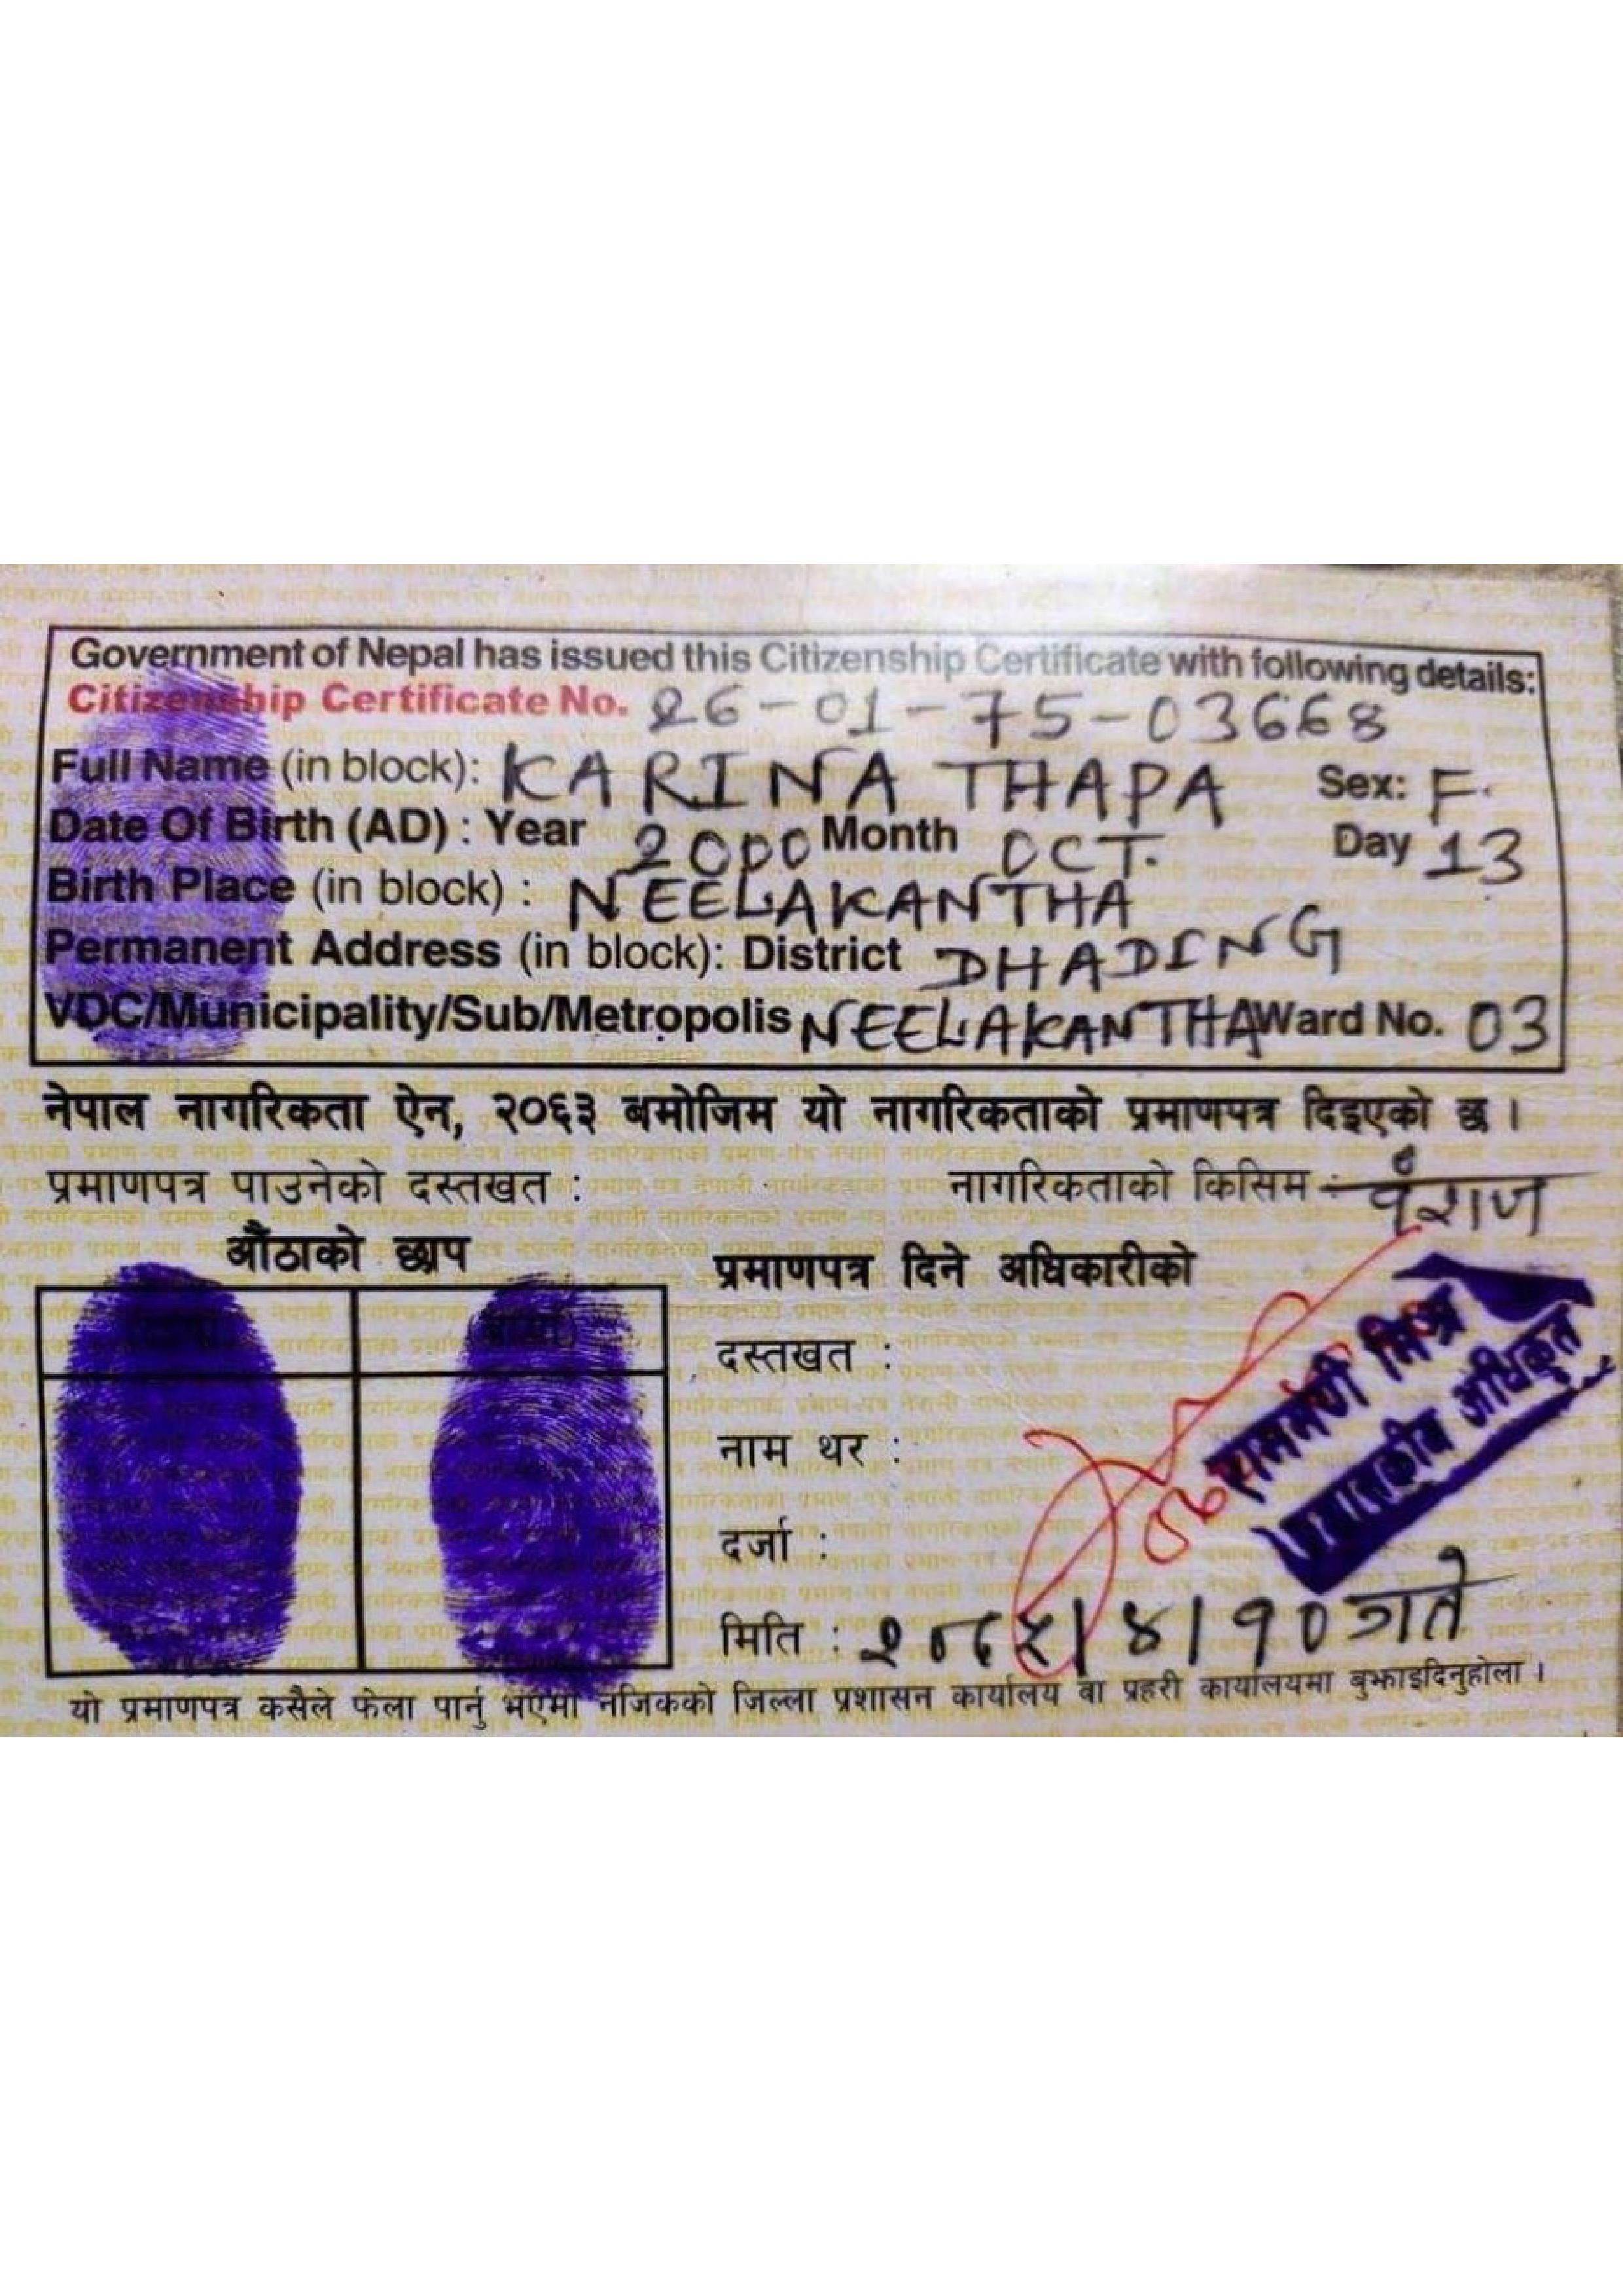 Government of Nepal has issued this Citizenship Certificate with following details:
Citizenship Certificate No. 26-01-75-03668
Full Name (in block): KARINA THAPA Sex: F.
Date Of Birth (AD) : Year 2000 Month OCT. Day 13
Birth Place (in block) : NEELAKANTHA
Permanent Address (in block): District DHADING
VDC/Municipality/Sub/Metropolis NEELAKANTHA Ward No. 03
नेपाल नागरिकता ऐन, २०६३ बमोजिम यो नागरिकताको प्रमाणपत्र दिइएको छ ।
प्रमाणपत्र पाउनेको दस्तखत : नागरिकताको किसिम : वंशज
औंठाको छाप
प्रमाणपत्र दिने अधिकारीको
दस्तखत :
नाम थर :
राममणी मिश्र
प्रशासकीय अधिकृत
दर्जा :
मिति : /४/१० गते
यो प्रमाणपत्र कसैले फेला पार्नु भएमा नजिकको जिल्ला प्रशासन कार्यालय वा प्रहरी कार्यालयमा बुझाइदिनुहोला ।